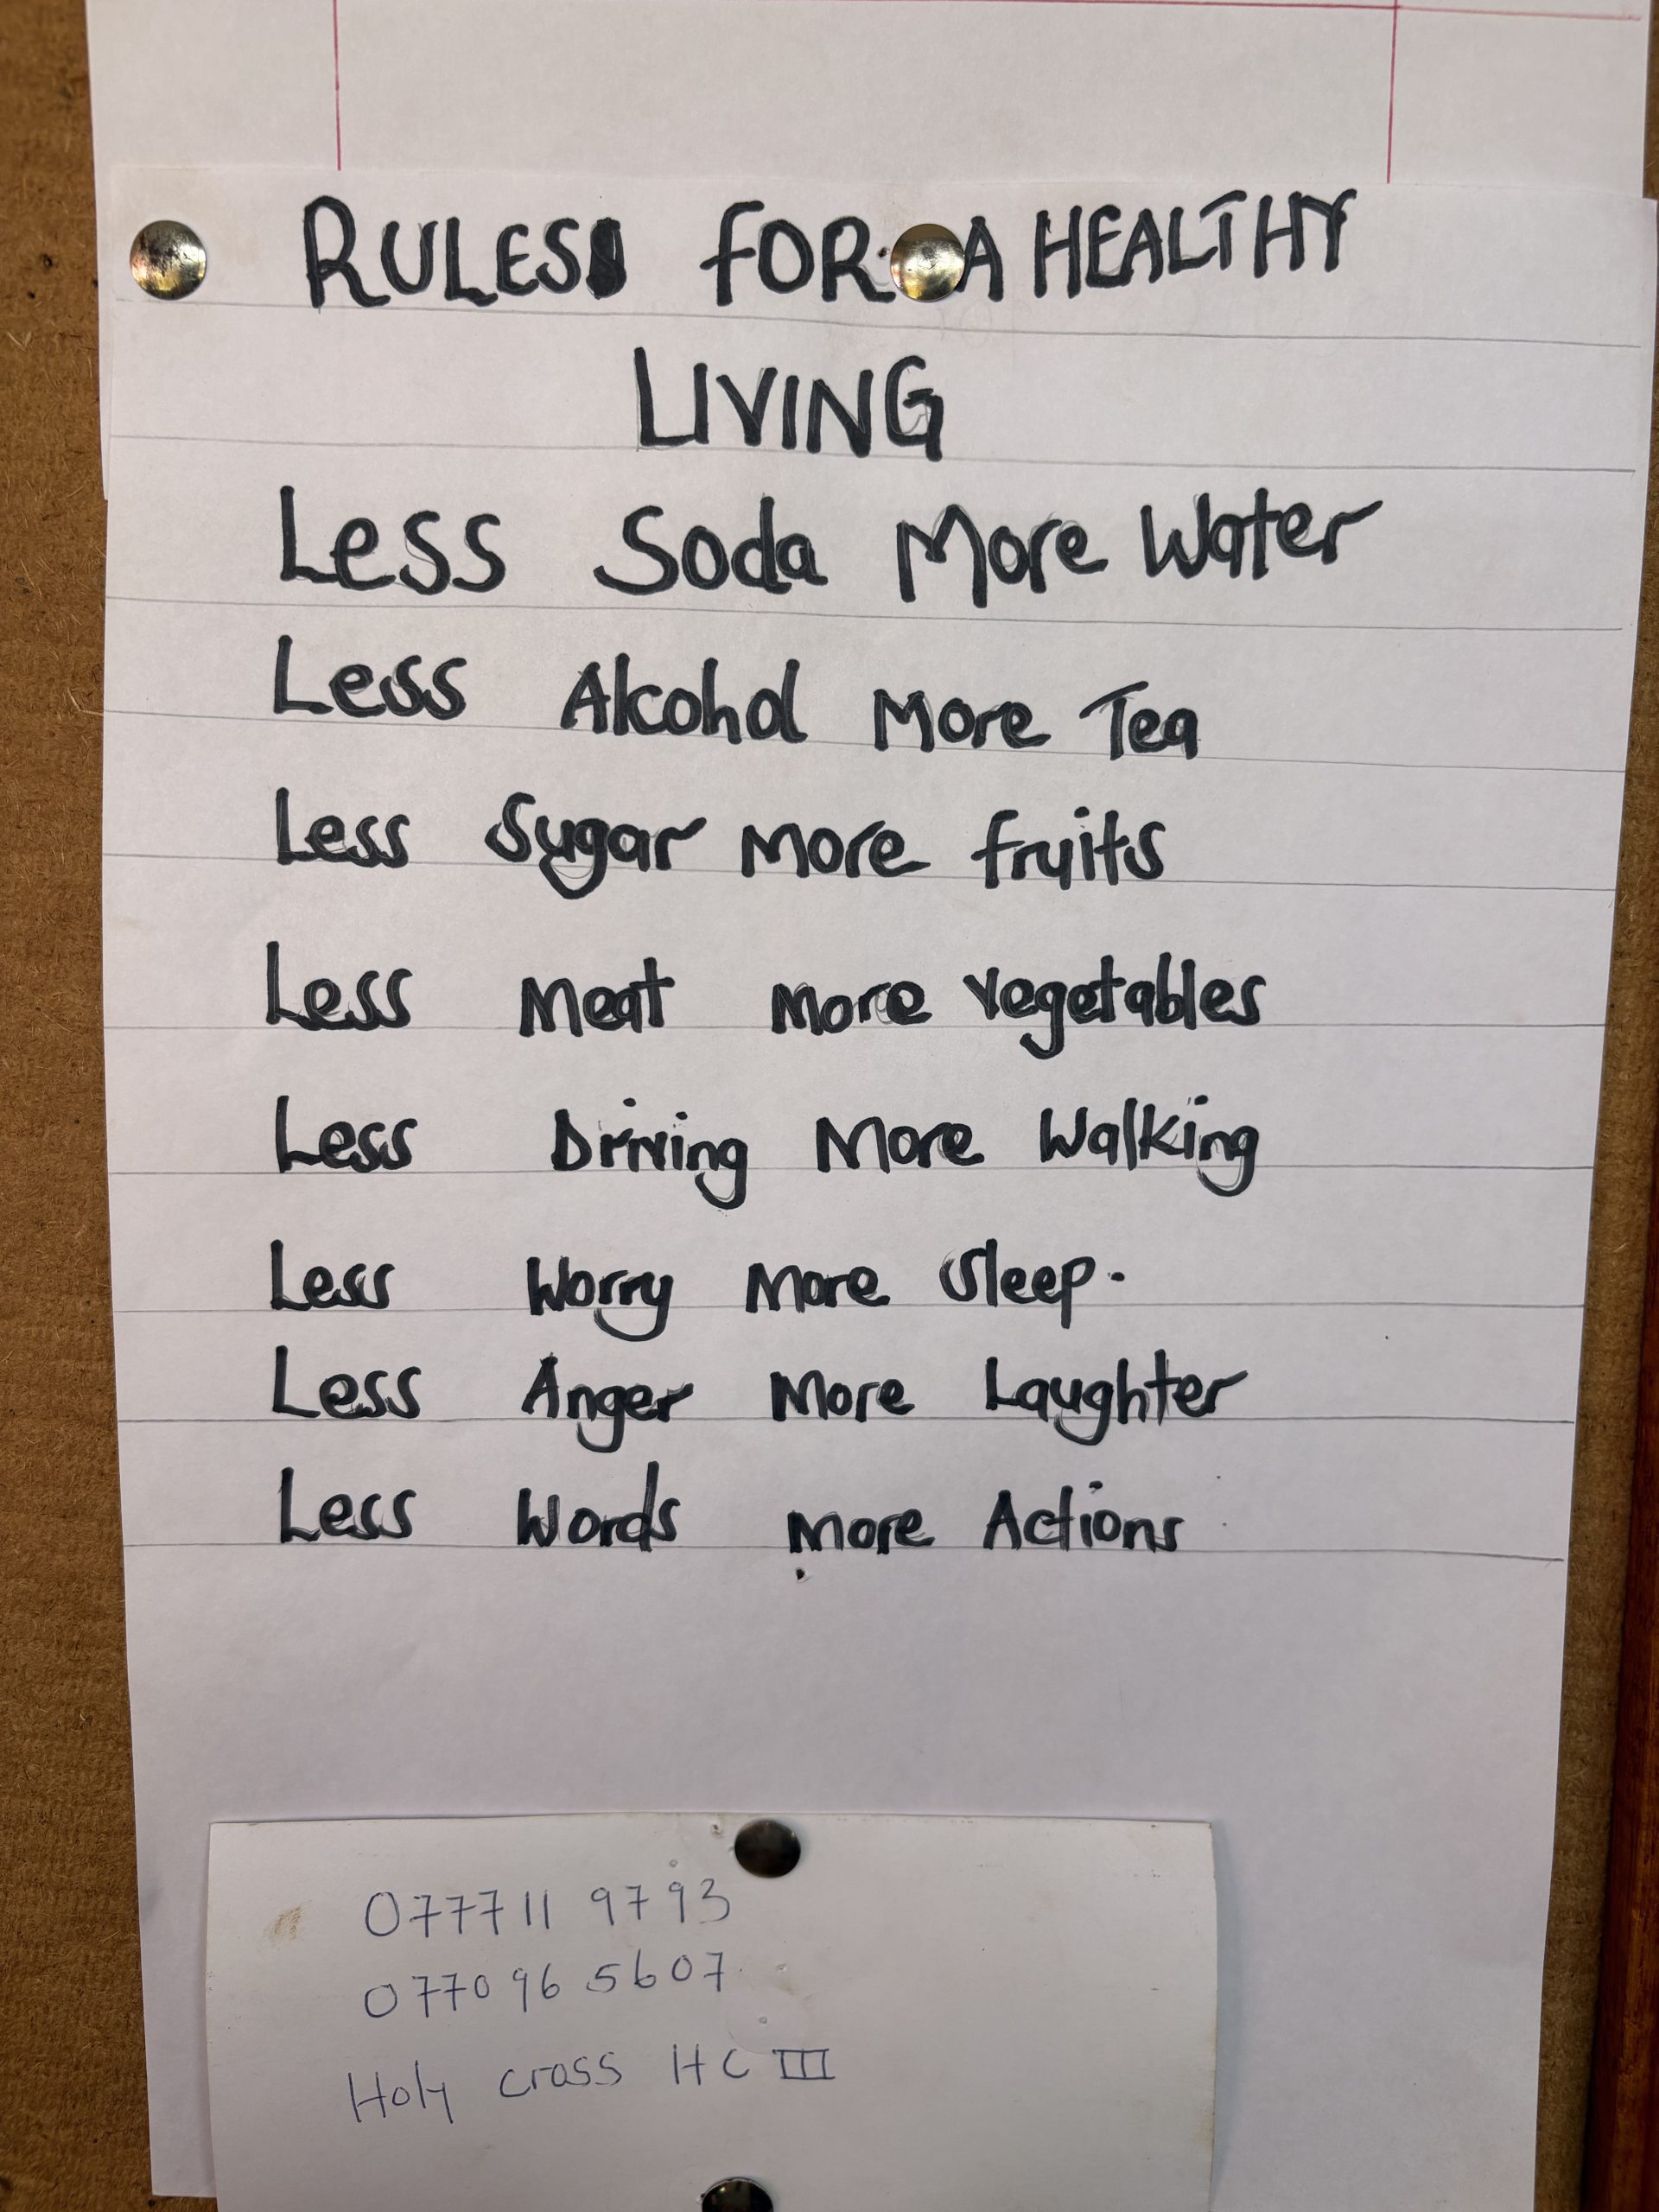 RULES FOR A HEALTHY
LIVING
Less Soda More Water
Less Alcohol More Tea
Less Sugar More fruits
Less Meat More vegetables
Less Driving More Walking
Less Worry More Sleep.
Less Anger More Laughter
Less Words More Actions
077711 9793
0770 96 5607
Holy cross HC III